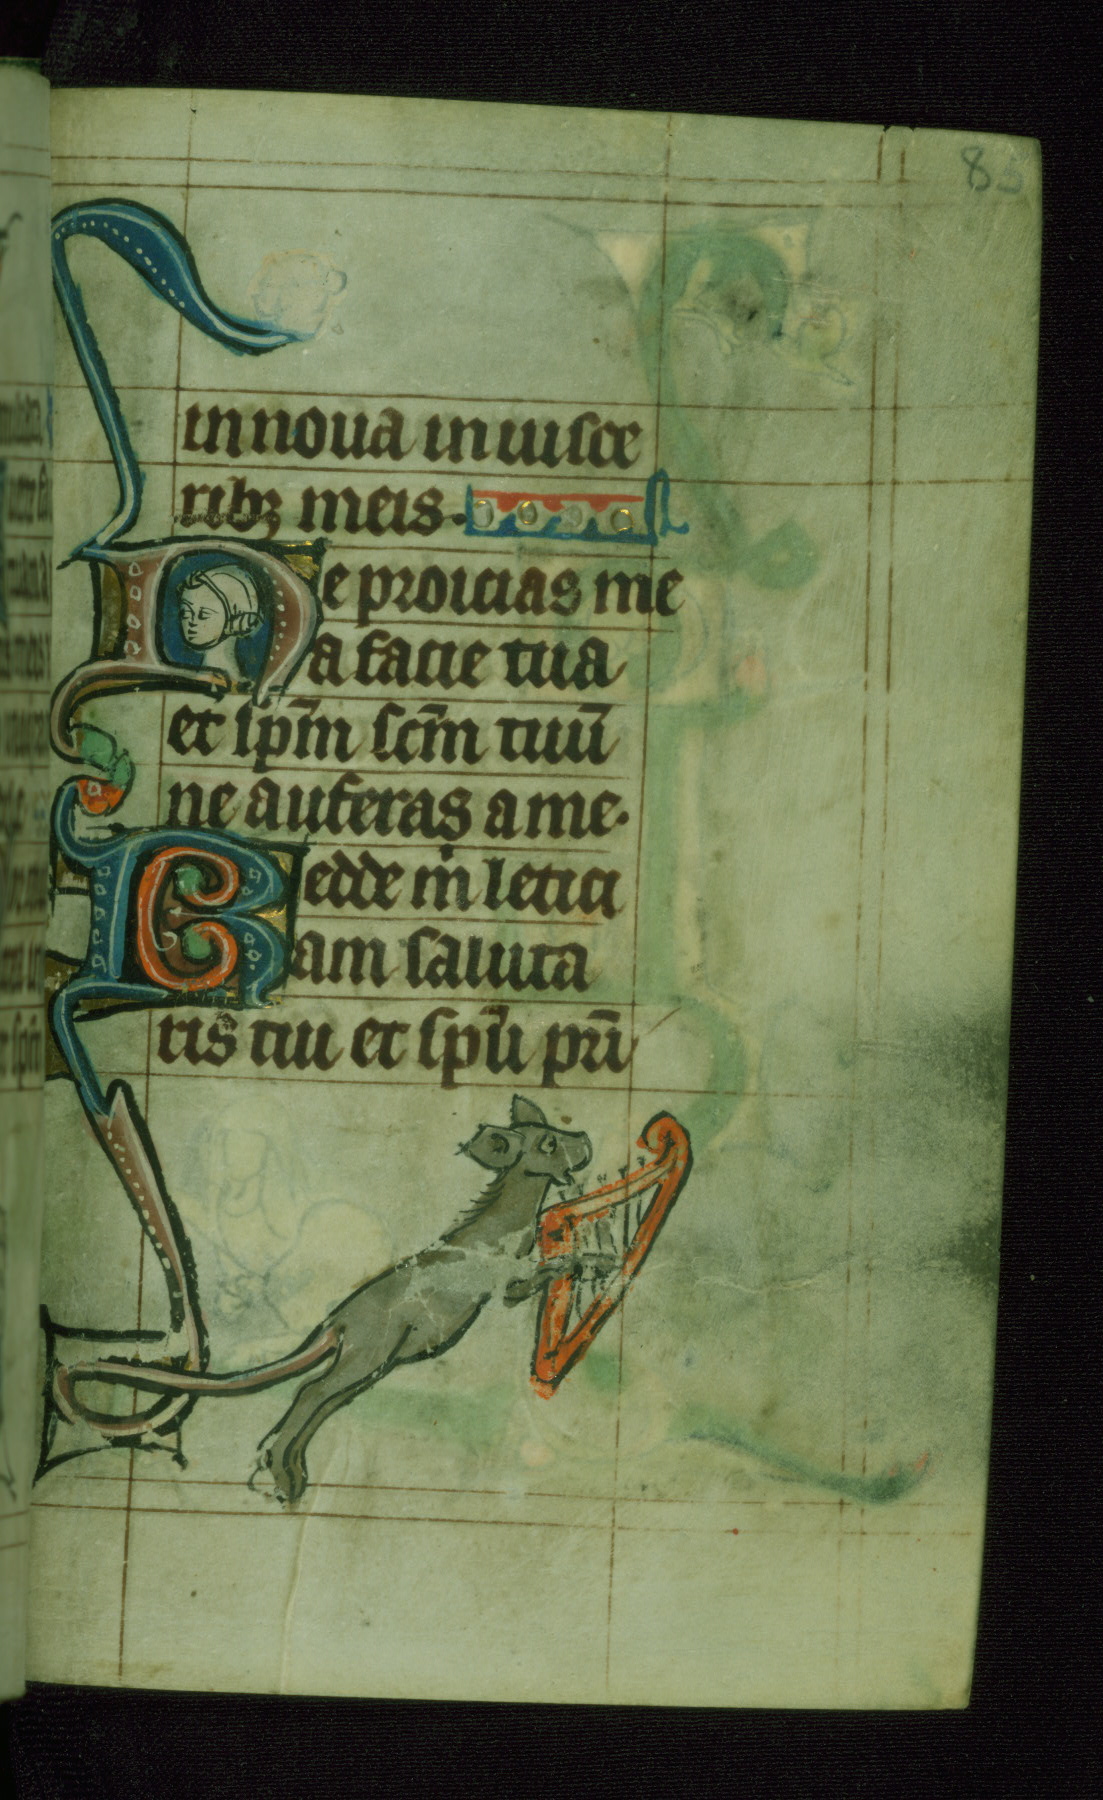 85
innoua in uisce
ribꝫ meis.
Ne proicias me
a facie tua
et sp̄m sc̄m tuū
ne auferas a me.
Redde ṁ letici
am saluta
ris tui et sp̄u pri̅